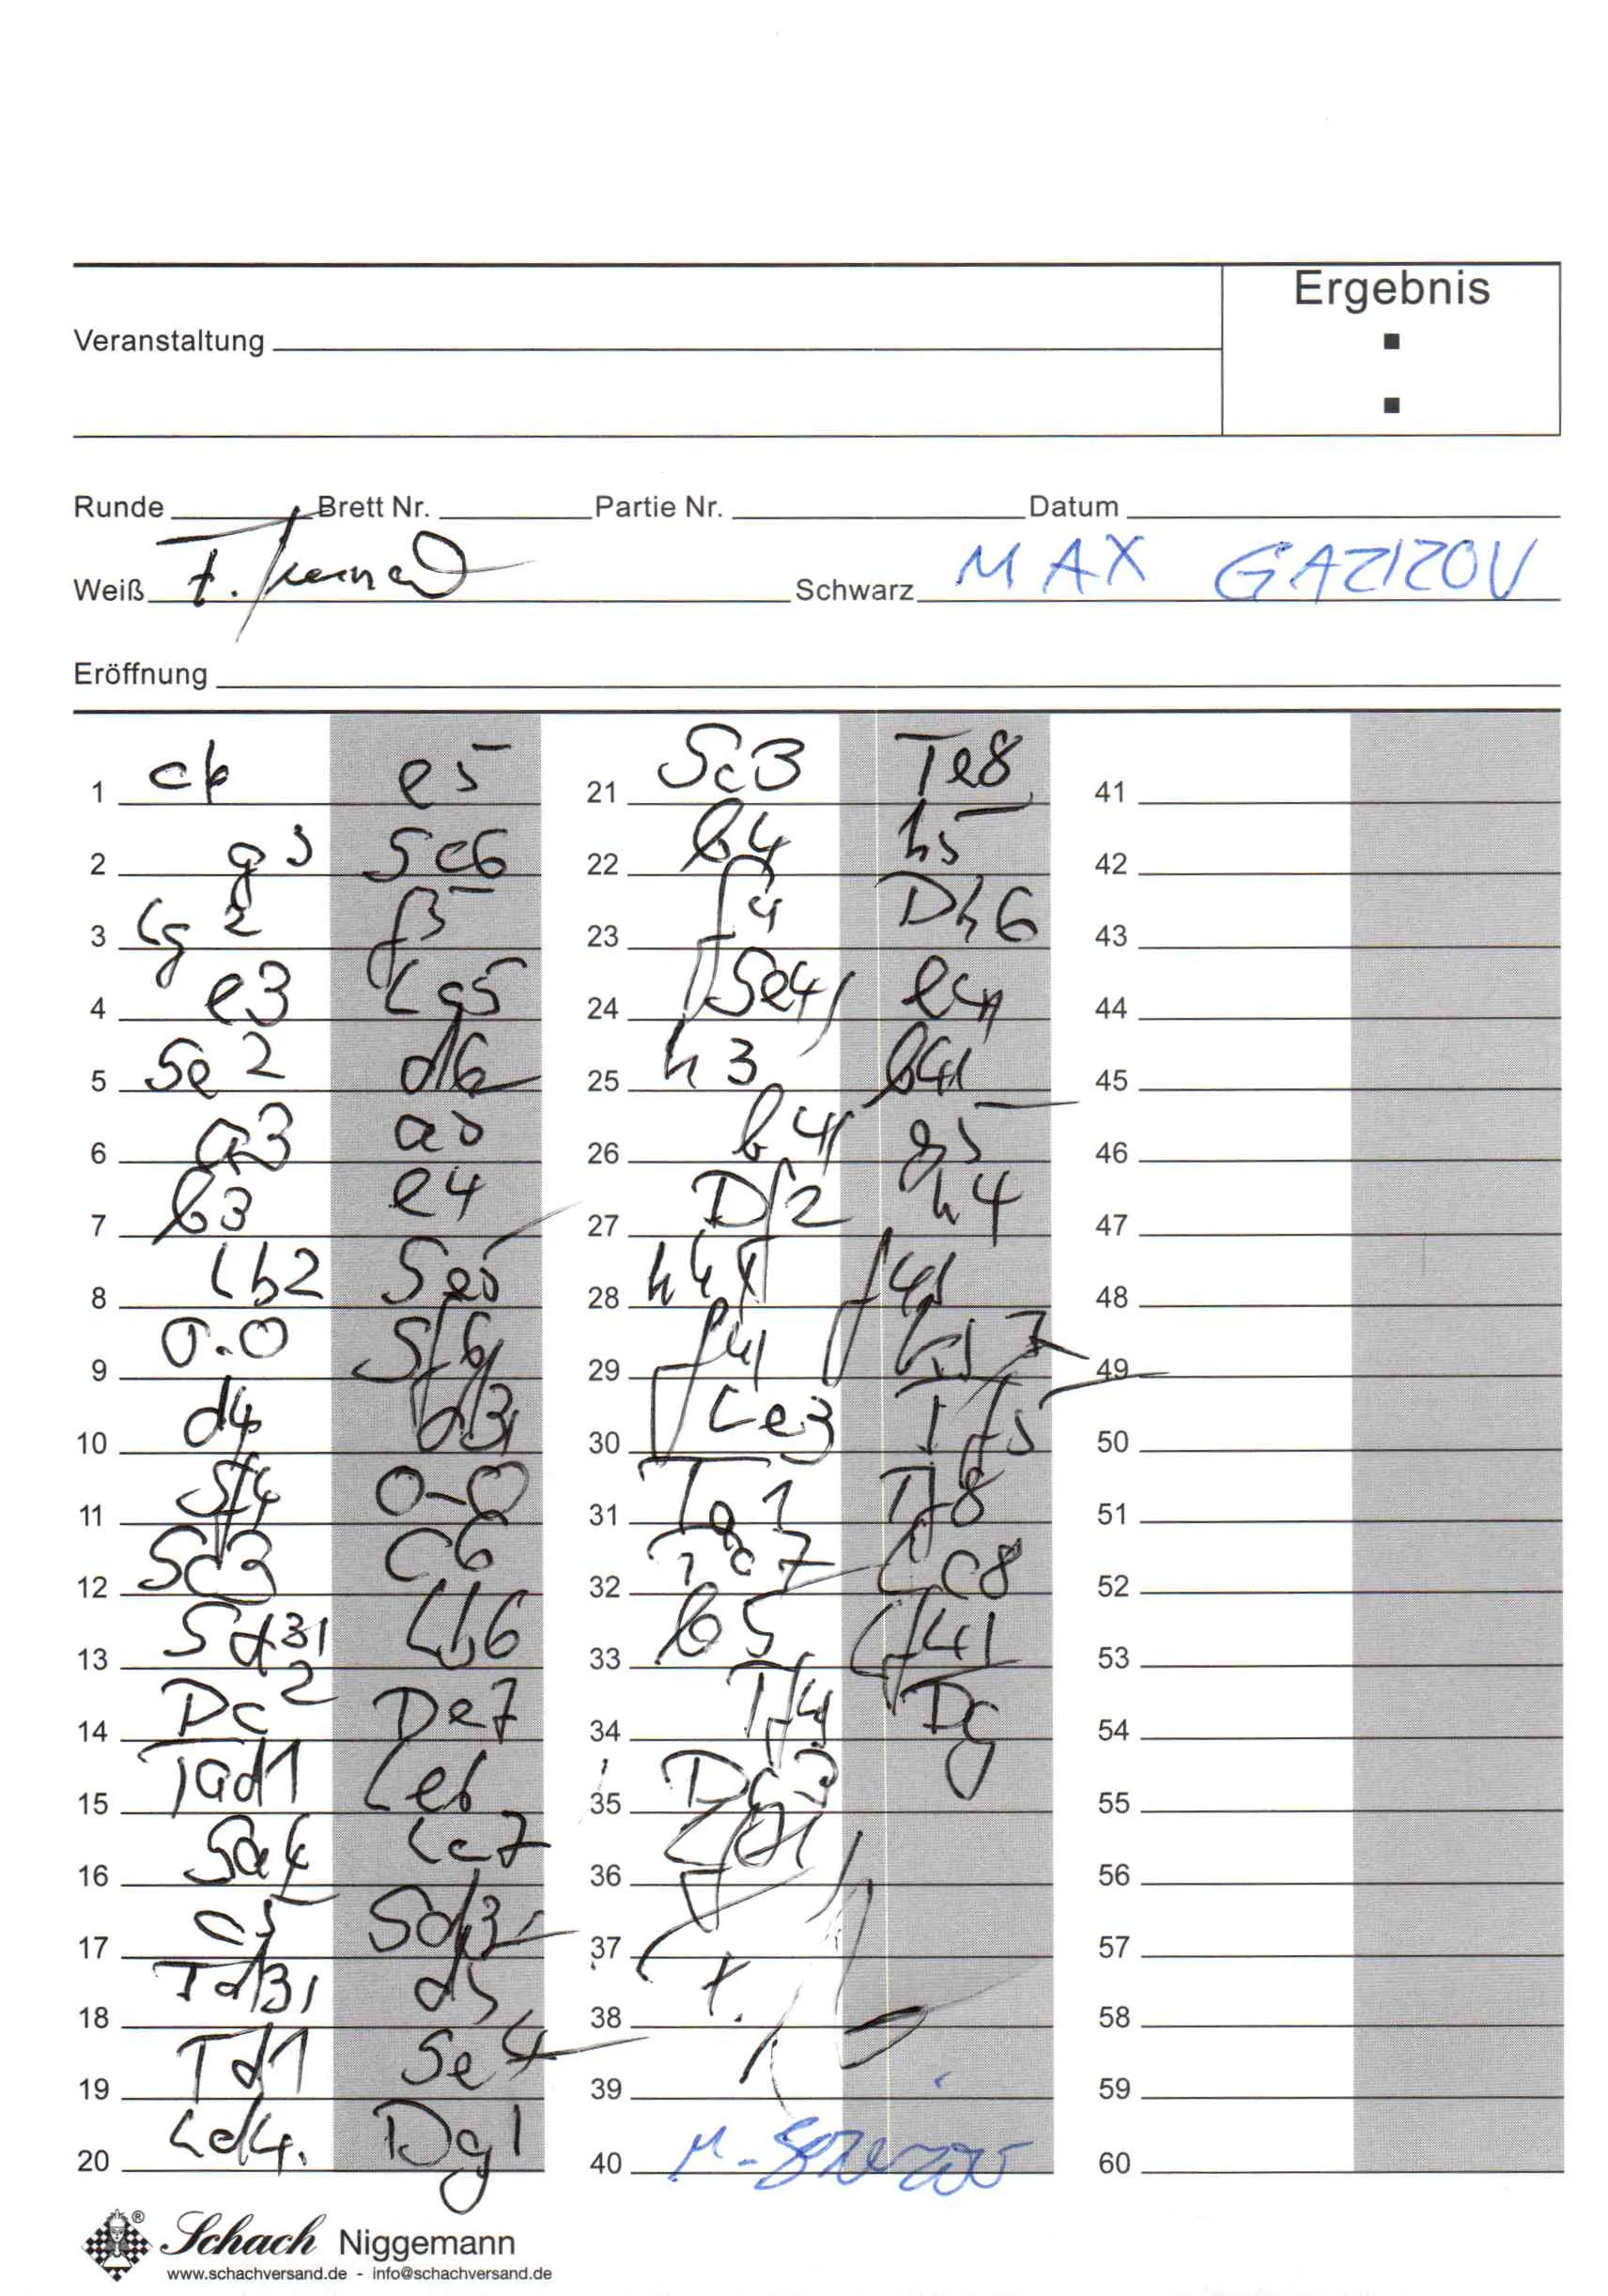 Ergebnis
Veranstaltung
Runde Brett Nr. Partie Nr. Datum
Weiß Schwarz MAX GAZIZOV
Eröffnung
1 c4 e5 21 Sc3 Te8 41
2 g3 Sc6 22 b4 h5 42
3 Lg2 f5 23 f4 Dh6 43
4 e3 Lc5 24 Se4 e4 44
5 Se2 d6 25 h3 b4 45
6 a3 a5 26 b4 g5 46
7 b3 e4 27 Df2 h4 47
8 Lb2 Se5 28 h4 f4 48
9 0-0 Sf6 29 f4 49
10 d4 d3 30 Le3 Tf5 50
11 Sf4 0-0 31 Ta1 Tf8 51
12 Sc3 c6 32 Ta7 Lc8 52
13 Sd3 Lb6 33 b5 Lf4 53
14 Dc2 De7 34 Tf4 Dg 54
15 Tad1 Le6 35 55
16 Sa4 Lc7 36 56
17 c5 Sd3 37 57
18 Td3 d5 38 58
19 Td1 Se4 39 59
20 Ld4. Dg 40 60
Schach Niggemann
www.schachversand.de - info@schachversand.de